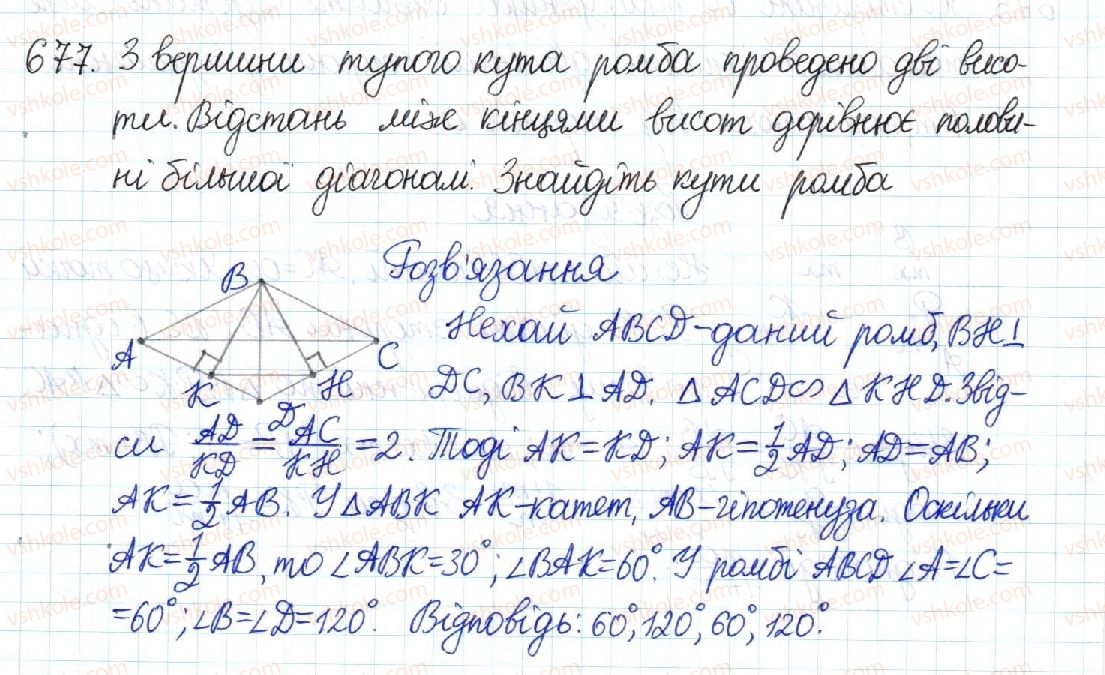 677. З вершини тупого кута ромба проведено дві висо-
ти. Відстань між кінцями висот дорівнює полови-
ні більшої діагоналі. Знайдіть кути ромба
Розв'язання
B
A
C
K
H
D
Нехай ABCD-даний ромб, BH⊥
DC, BK⊥AD. △ACD∽△KHD. Звід-
си AD/KD = AC/KH = 2. Тоді AK=KD; AK=1/2 AD; AD=AB;
AK=1/2 AB. У △ABK AK-катет, AB-гіпотенуза. Оскільки
AK=1/2 AB, то ∠ABK=30°; ∠BAK=60°. У ромбі ABCD ∠A=∠C=
=60°; ∠B=∠D=120°. Відповідь: 60°, 120°, 60°, 120°.
vshkole.com